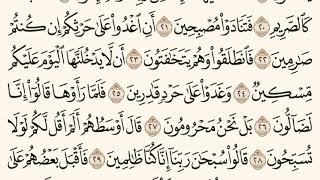 كَٱلصَّرِيمِ ٢٠ فَتَنَادَوْا۟ مُصْبِحِينَ ٢١ أَنِ ٱغْدُوا۟ عَلَىٰ حَرْثِكُمْ إِن كُنتُمْ
صَٰرِمِينَ ٢٢ فَٱنطَلَقُوا۟ وَهُمْ يَتَخَٰفَتُونَ ٢٣ أَن لَّا يَدْخُلَنَّهَا ٱلْيَوْمَ عَلَيْكُم
مِّسْكِينٌ ٢٤ وَغَدَوْا۟ عَلَىٰ حَرْدٍ قَٰدِرِينَ ٢٥ فَلَمَّا رَأَوْهَا قَالُوٓا۟ إِنَّا
لَضَآلُّونَ ٢٦ بَلْ نَحْنُ مَحْرُومُونَ ٢٧ قَالَ أَوْسَطُهُمْ أَلَمْ أَقُل لَّكُمْ لَوْلَا
تُسَبِّحُونَ ٢٨ قَالُوا۟ سُبْحَٰنَ رَبِّنَآ إِنَّا كُنَّا ظَٰلِمِينَ ٢٩ فَأَقْبَلَ بَعْضُهُمْ عَلَىٰ